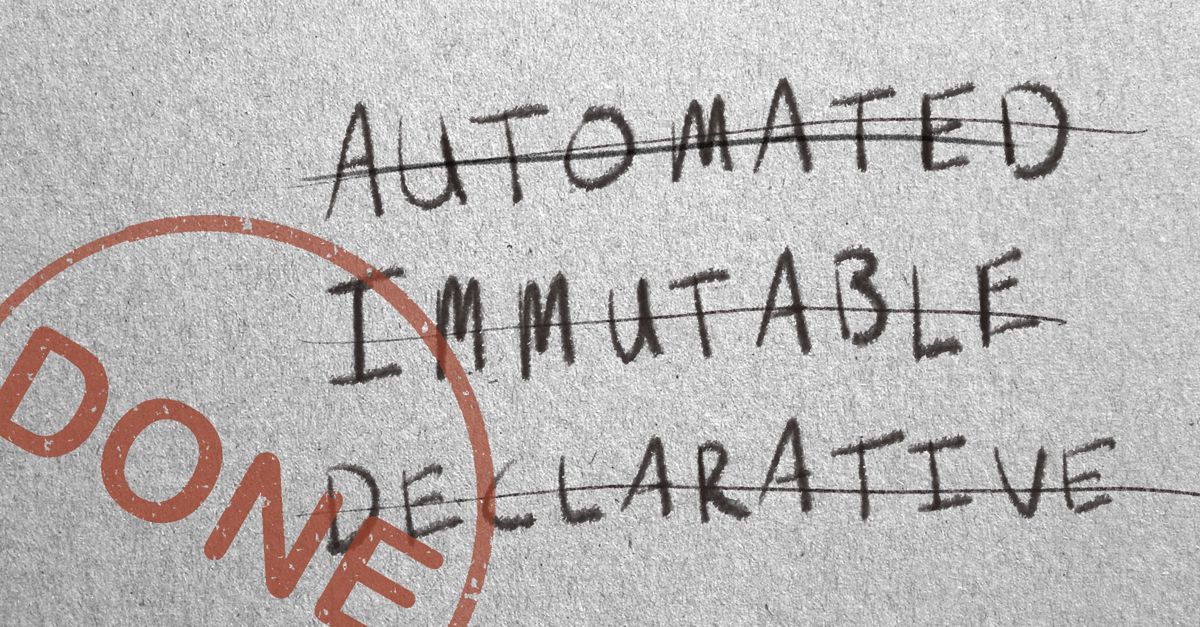 AUTOMATED
IMMUTABLE
DECLARATIVE
DONE